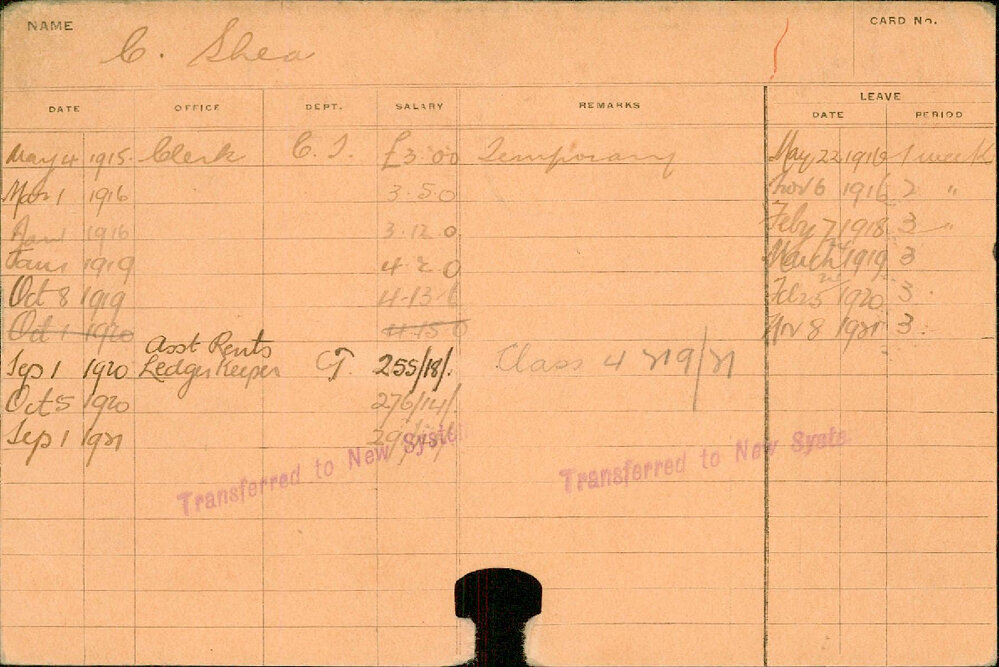 NAME C. Shea CARD No.
DATE OFFICE DEPT. SALARY REMARKS LEAVE
DATE PERIOD
May 4 1915 Clerk C.T. £3.0.0 Temporary May 22 1916 1 week
Mar 1 1916 3.5.0 Nov 6 1916 2 "
1916 3.12.0 Feby 7 1918 3 "
Jan 1 1919 4.2.0 March 1919 3
Oct 8 1919 4.13.6 Feb 25 1920 3
Oct 1 1920 4.15.0 Nov 8 1921 3
Asst Rents
Sep 1 1920 Ledger Keeper CT. 255/18/. Class 4 219/21
Oct 5 1920 276/14/.
Sep 1 1921
Transferred to New System Transferred to New Syste